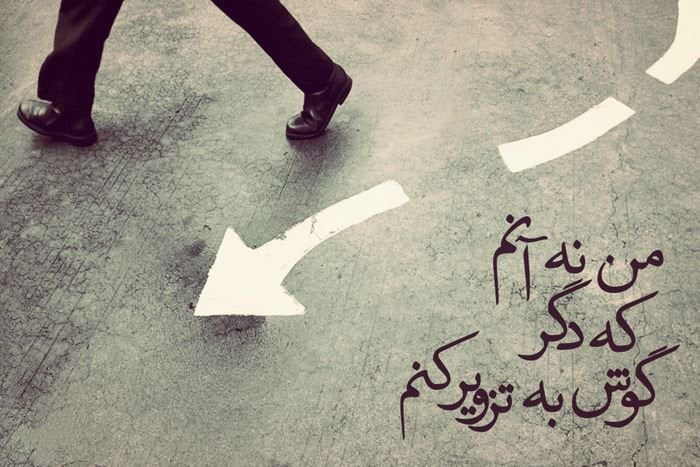 من نه آنم
که دگر
گوش به تزویر کنم